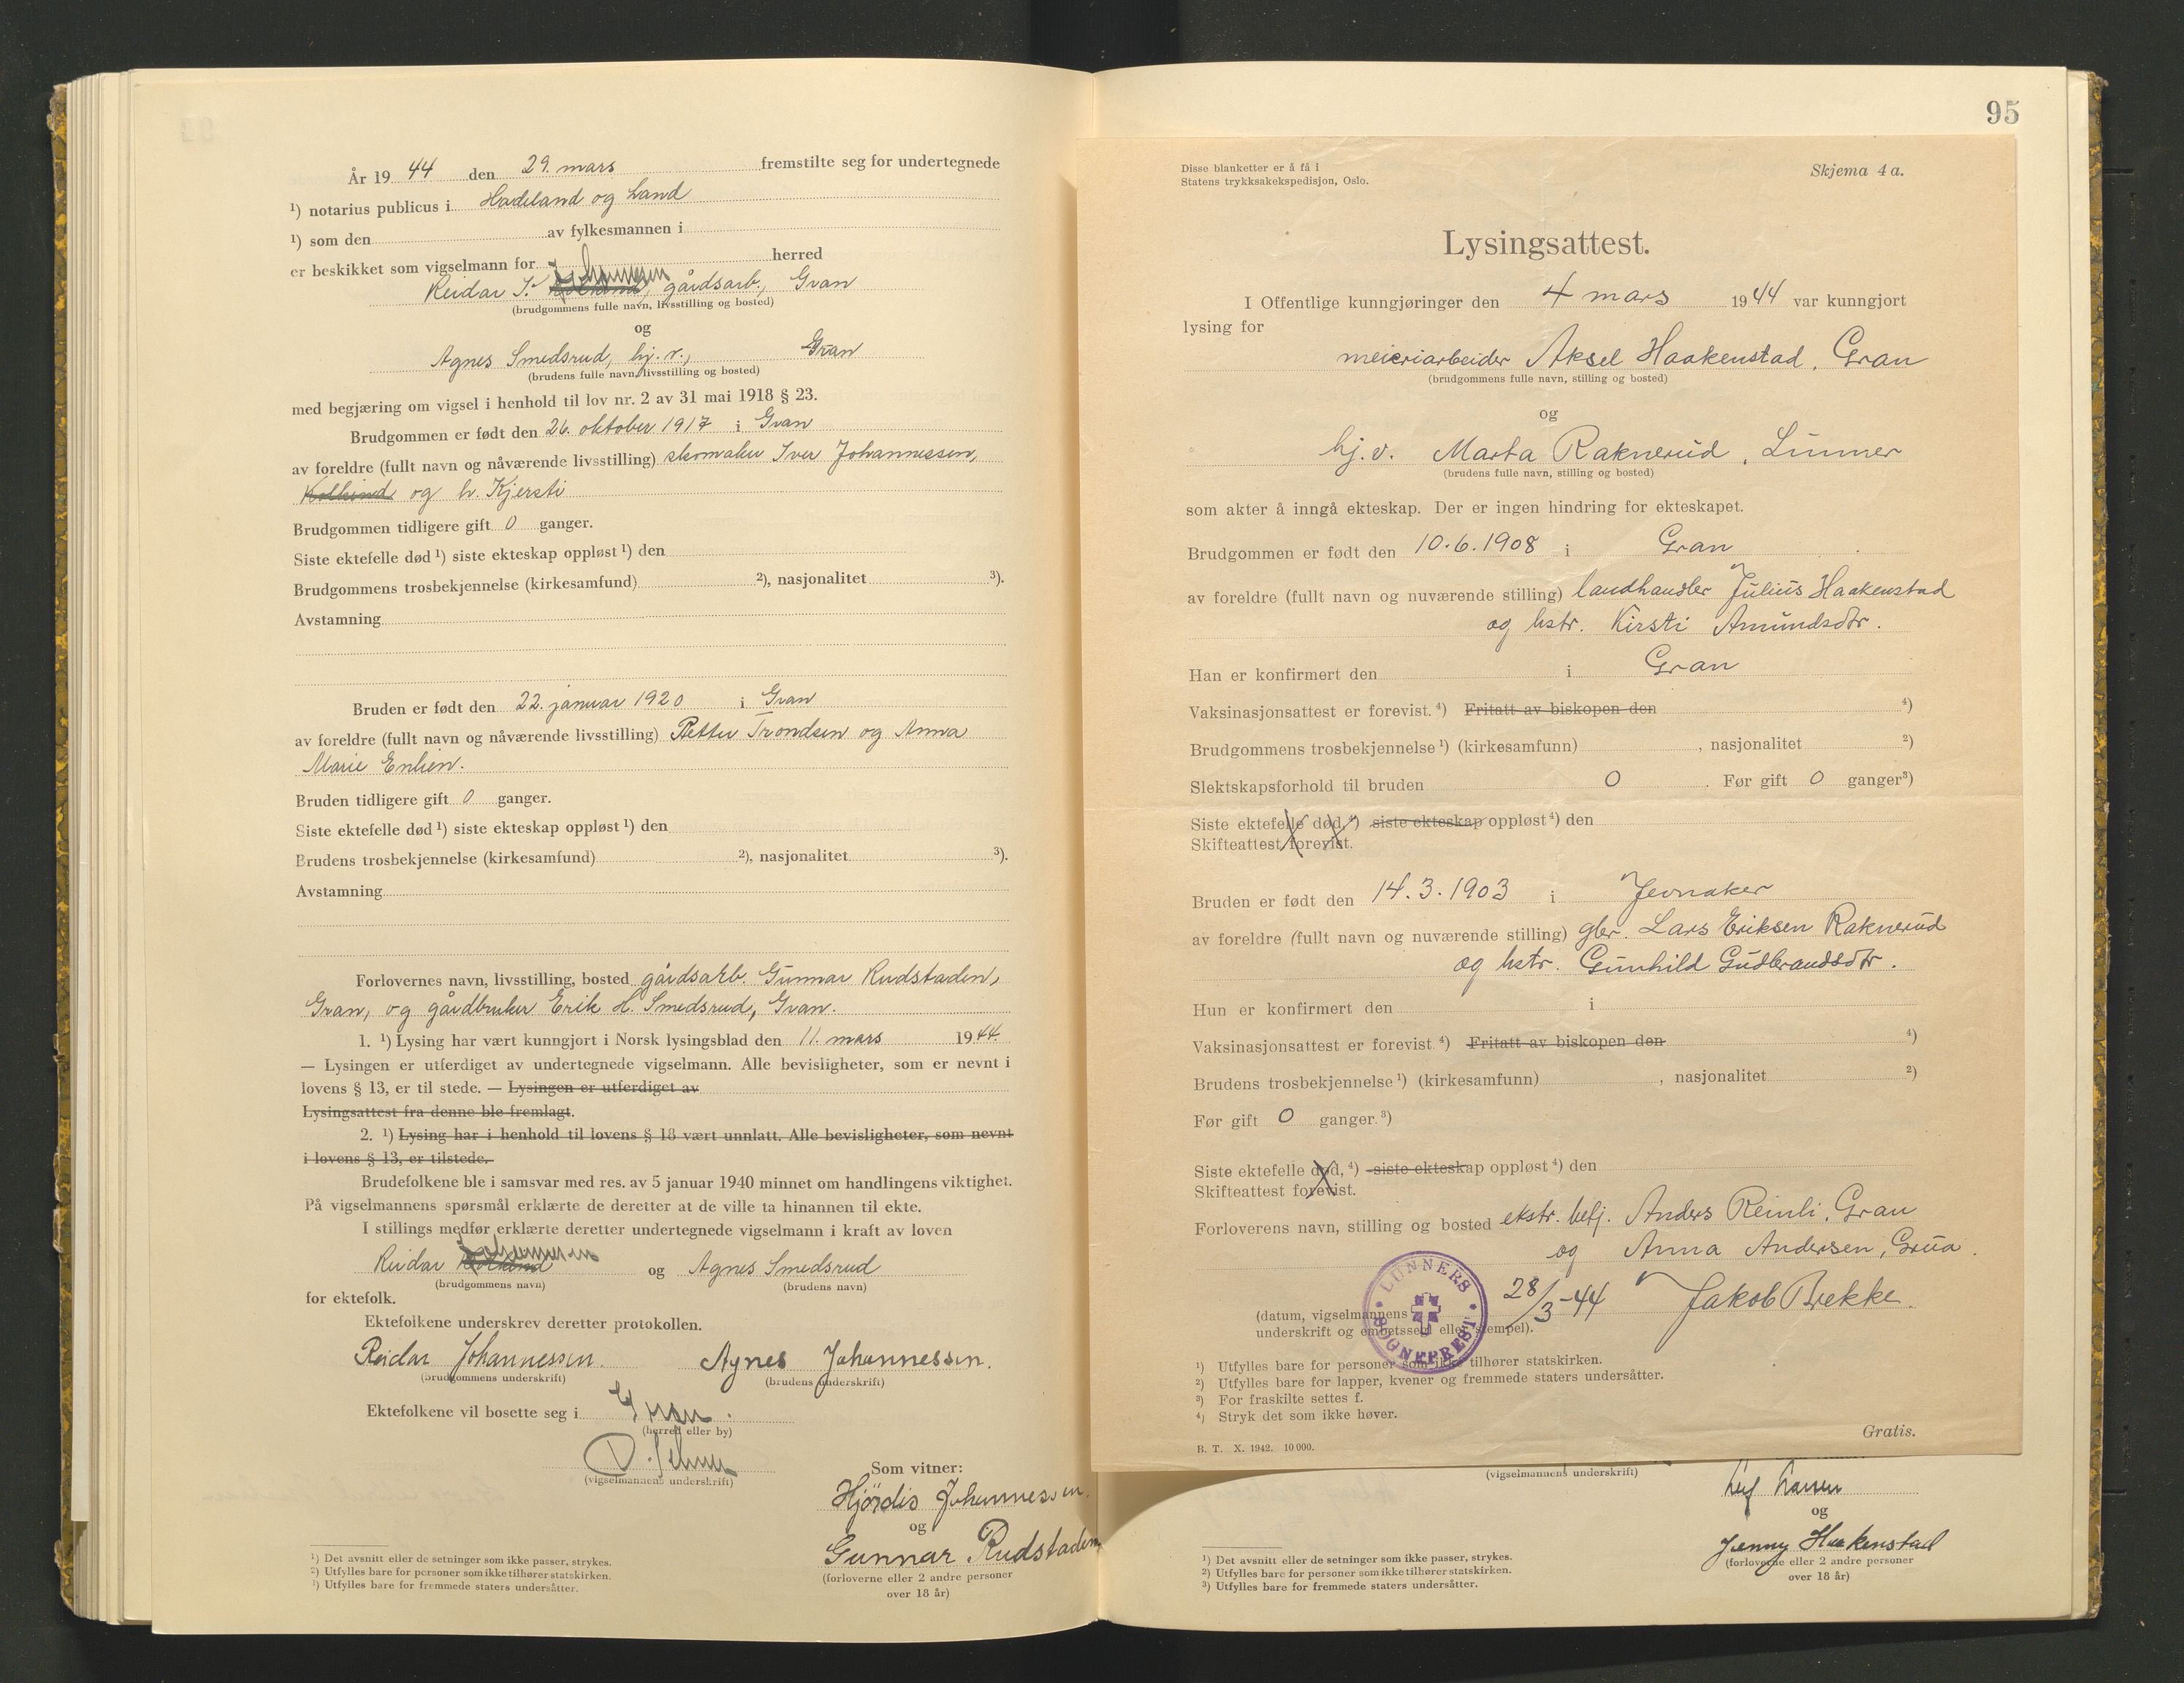 År 19 44 den 29. mars fremstilte seg for undertegnede
¹) notarius publicus i Hadeland og Land
¹) som den av fylkesmannen i
er beskikket som vigselmann for herred
Johannessen
Reidar I. gårdsarb., Gran
(brudgommens fulle navn, livsstilling og bosted)
og
Agnes Smedsrud, hj. v., Gran
(brudens fulle navn, livsstilling og bosted)
med begjæring om vigsel i henhold til lov nr. 2 av 31 mai 1918 § 23.
Brudgommen er født den 26. oktober 1917 i Gran
av foreldre (fullt navn og nåværende livsstilling) skomaker Iver Johannessen,
Kolkind og h. Kjersti
Brudgommen tidligere gift 0 ganger.
Siste ektefelle død ¹) siste ekteskap oppløst ¹) den
Brudgommens trosbekjennelse (kirkesamfund) ²), nasjonalitet ³).
Avstamning
Bruden er født den 22. januar 1920 i Gran
av foreldre (fullt navn og nåværende livsstilling) Petter Trondsen og Anna
Marie Enlien.
Bruden tidligere gift 0 ganger.
Siste ektefelle død ¹) siste ekteskap oppløst ¹) den
Brudens trosbekjennelse (kirkesamfund) ²), nasjonalitet ³).
Avstamning
Forlovernes navn, livsstilling, bosted gårdsarb. Gunnar Rudstaden,
Gran, og gårdbruker Erik H. Smedsrud, Gran.
1. ¹) Lysing har vært kunngjort i Norsk lysingsblad den 11. mars 1944.
— Lysingen er utferdiget av undertegnede vigselmann. Alle bevisligheter, som er nevnt i
lovens § 13, er til stede. — Lysingen er utferdiget av
Lysingsattest fra denne ble fremlagt.
2. ¹) Lysing har i henhold til lovens § 18 vært unnlatt. Alle bevisligheter, som nevnt
i lovens § 13, er tilstede.
Brudefolkene ble i samsvar med res. av 5 januar 1940 minnet om handlingens viktighet.
På vigselmannens spørsmål erklærte de deretter at de ville ta hinannen til ekte.
I stillings medfør erklærte deretter undertegnede vigselmann i kraft av loven
Johannessen
Reidar og Agnes Smedsrud
(brudgommens navn) (brudens navn)
for ektefolk.
Ektefolkene underskrev deretter protokollen.
Reidar Johannessen. Agnes Johannessen.
(brudgommens underskrift) (brudens underskrift)
Ektefolkene vil bosette seg i Gran.
(herred eller by)
(vigselmannens underskrift)
Som vitner:
Hjördis Johannessen.
og
Gunnar Rudstaden
(forloverne eller 2 andre personer
over 18 år)
¹) Det avsnitt eller de setninger som ikke passer, strykes.
²) Utfylles bare for personer som ikke tilhører statskirken.
³) Utfylles bare for fremmede staters undersåtter.
95
Disse blanketter er å få i
Statens trykksakekspedisjon, Oslo.
Skjema 4 a.
Lysingsattest.
I Offentlige kunngjøringer den 4 mars 1944 var kunngjort
lysing for
meieriarbeider Aksel Haakenstad, Gran
(brudgommens fulle navn, stilling og bosted)
og
hj. v. Marta Raknerud, Lunner
(brudens fulle navn, stilling og bosted)
som akter å inngå ekteskap. Der er ingen hindring for ekteskapet.
Brudgommen er født den 10.6.1908 i Gran
av foreldre (fullt navn og nuværende stilling) landhandler Julius Haakenstad
og hstr. Kirsti Amundsdtr.
Han er konfirmert den i Gran
Vaksinasjonsattest er forevist. ⁴) Fritatt av biskopen den ⁴)
Brudgommens trosbekjennelse ¹) (kirkesamfunn) , nasjonalitet ²)
Slektskapsforhold til bruden 0. Før gift 0 ganger ³)
Siste ektefelle død, ⁴) siste ekteskap oppløst ⁴) den
Skifteattest forevist.
Bruden er født den 14.3.1903 i Jevnaker
av foreldre (fullt navn og nuværende stilling) gbr. Lars Eriksen Raknerud
og hstr. Gunhild Gudbrandsdtr.
Hun er konfirmert den i
Vaksinasjonsattest er forevist ⁴) Fritatt av biskopen den ⁴)
Brudens trosbekjennelse ¹) (kirkesamfunn) , nasjonalitet ²)
Før gift 0 ganger. ³)
Siste ektefelle død, ⁴) siste ekteskap oppløst ⁴) den
Skifteattest forevist.
Forloverens navn, stilling og bosted ekstr. betj. Anders Reinli, Gran
og Anna Andersen, Grua.
28/3-44 Jakob Brekke.
(datum, vigselmannens
underskrift og embetssegl eller stempel).
LUNNERS SOGNEPREST
¹) Utfylles bare for personer som ikke tilhører statskirken.
²) Utfylles bare for lapper, kvener og fremmede staters undersåtter.
³) For fraskilte settes f.
⁴) Stryk det som ikke høver.
Gratis.
B. T. X. 1942. 10 000.
(vigselmannens underskrift)
Leif Larsen
og
Jenny Haakenstad
(forloverne eller 2 andre personer
over 18 år)
¹) Det avsnitt eller de setninger som ikke passer, strykes.
²) Utfylles bare for personer som ikke tilhører statskirken.
³) Utfylles bare for fremmede staters undersåtter.